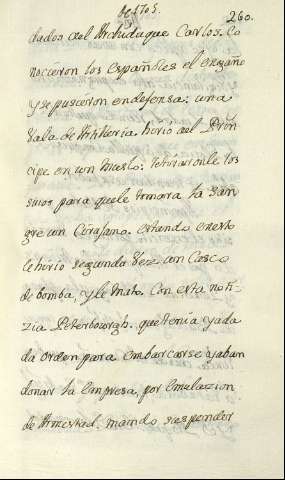 de 1705.
260.
dados del Archiduque Carlos. Co
nocieron los Españoles el engaño
y se pusieron en defensa: una
vala de Artilleria hirió al Prin
cipe en un muslo: retiraronle los
suios para que le tomara la san
gre un Cirujano. estando en esto
le hirio segunda vez un Casco
de bomba, y le mato. Con esta noti-
zia Peterbourgh. que tenia ya da
da orden para embarcarse y aban
donar la empresa, por emulazion
de Armestad. mandó suspender